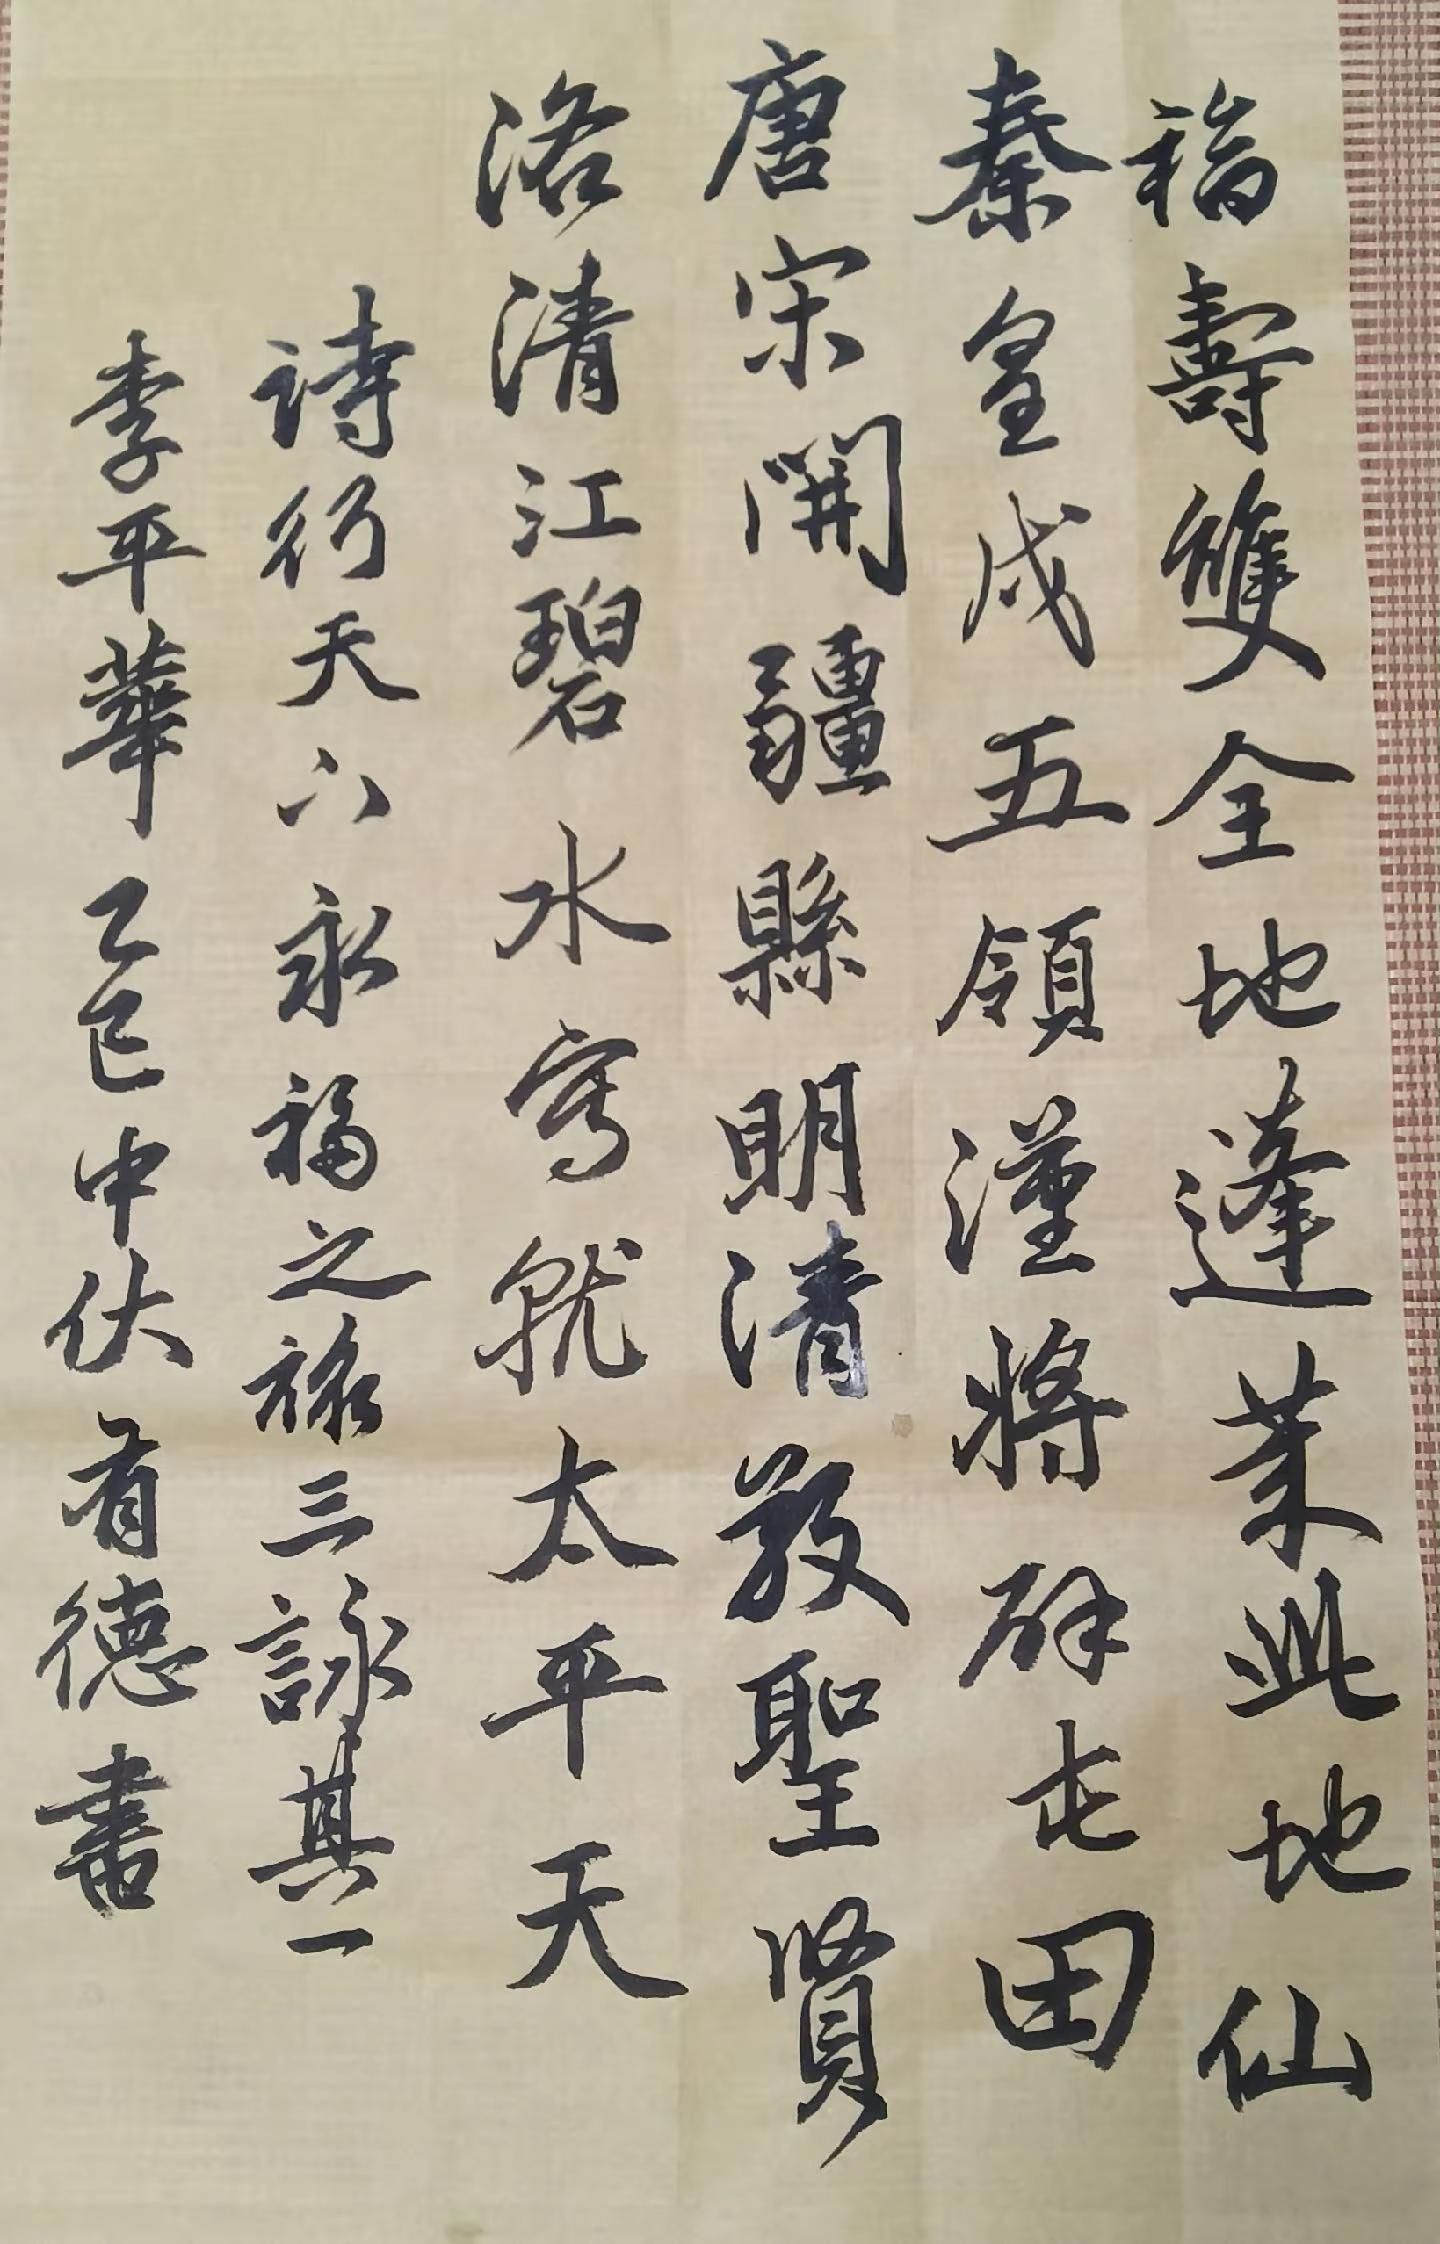 福壽雙全地蓬萊此地仙
秦皇戍五領漢將辟屯田
唐宋開疆縣明清敬聖賢
洛清江碧水寫就太平天
詩行天下永福之旅三詠其一
李平華乙巳中伏有德書